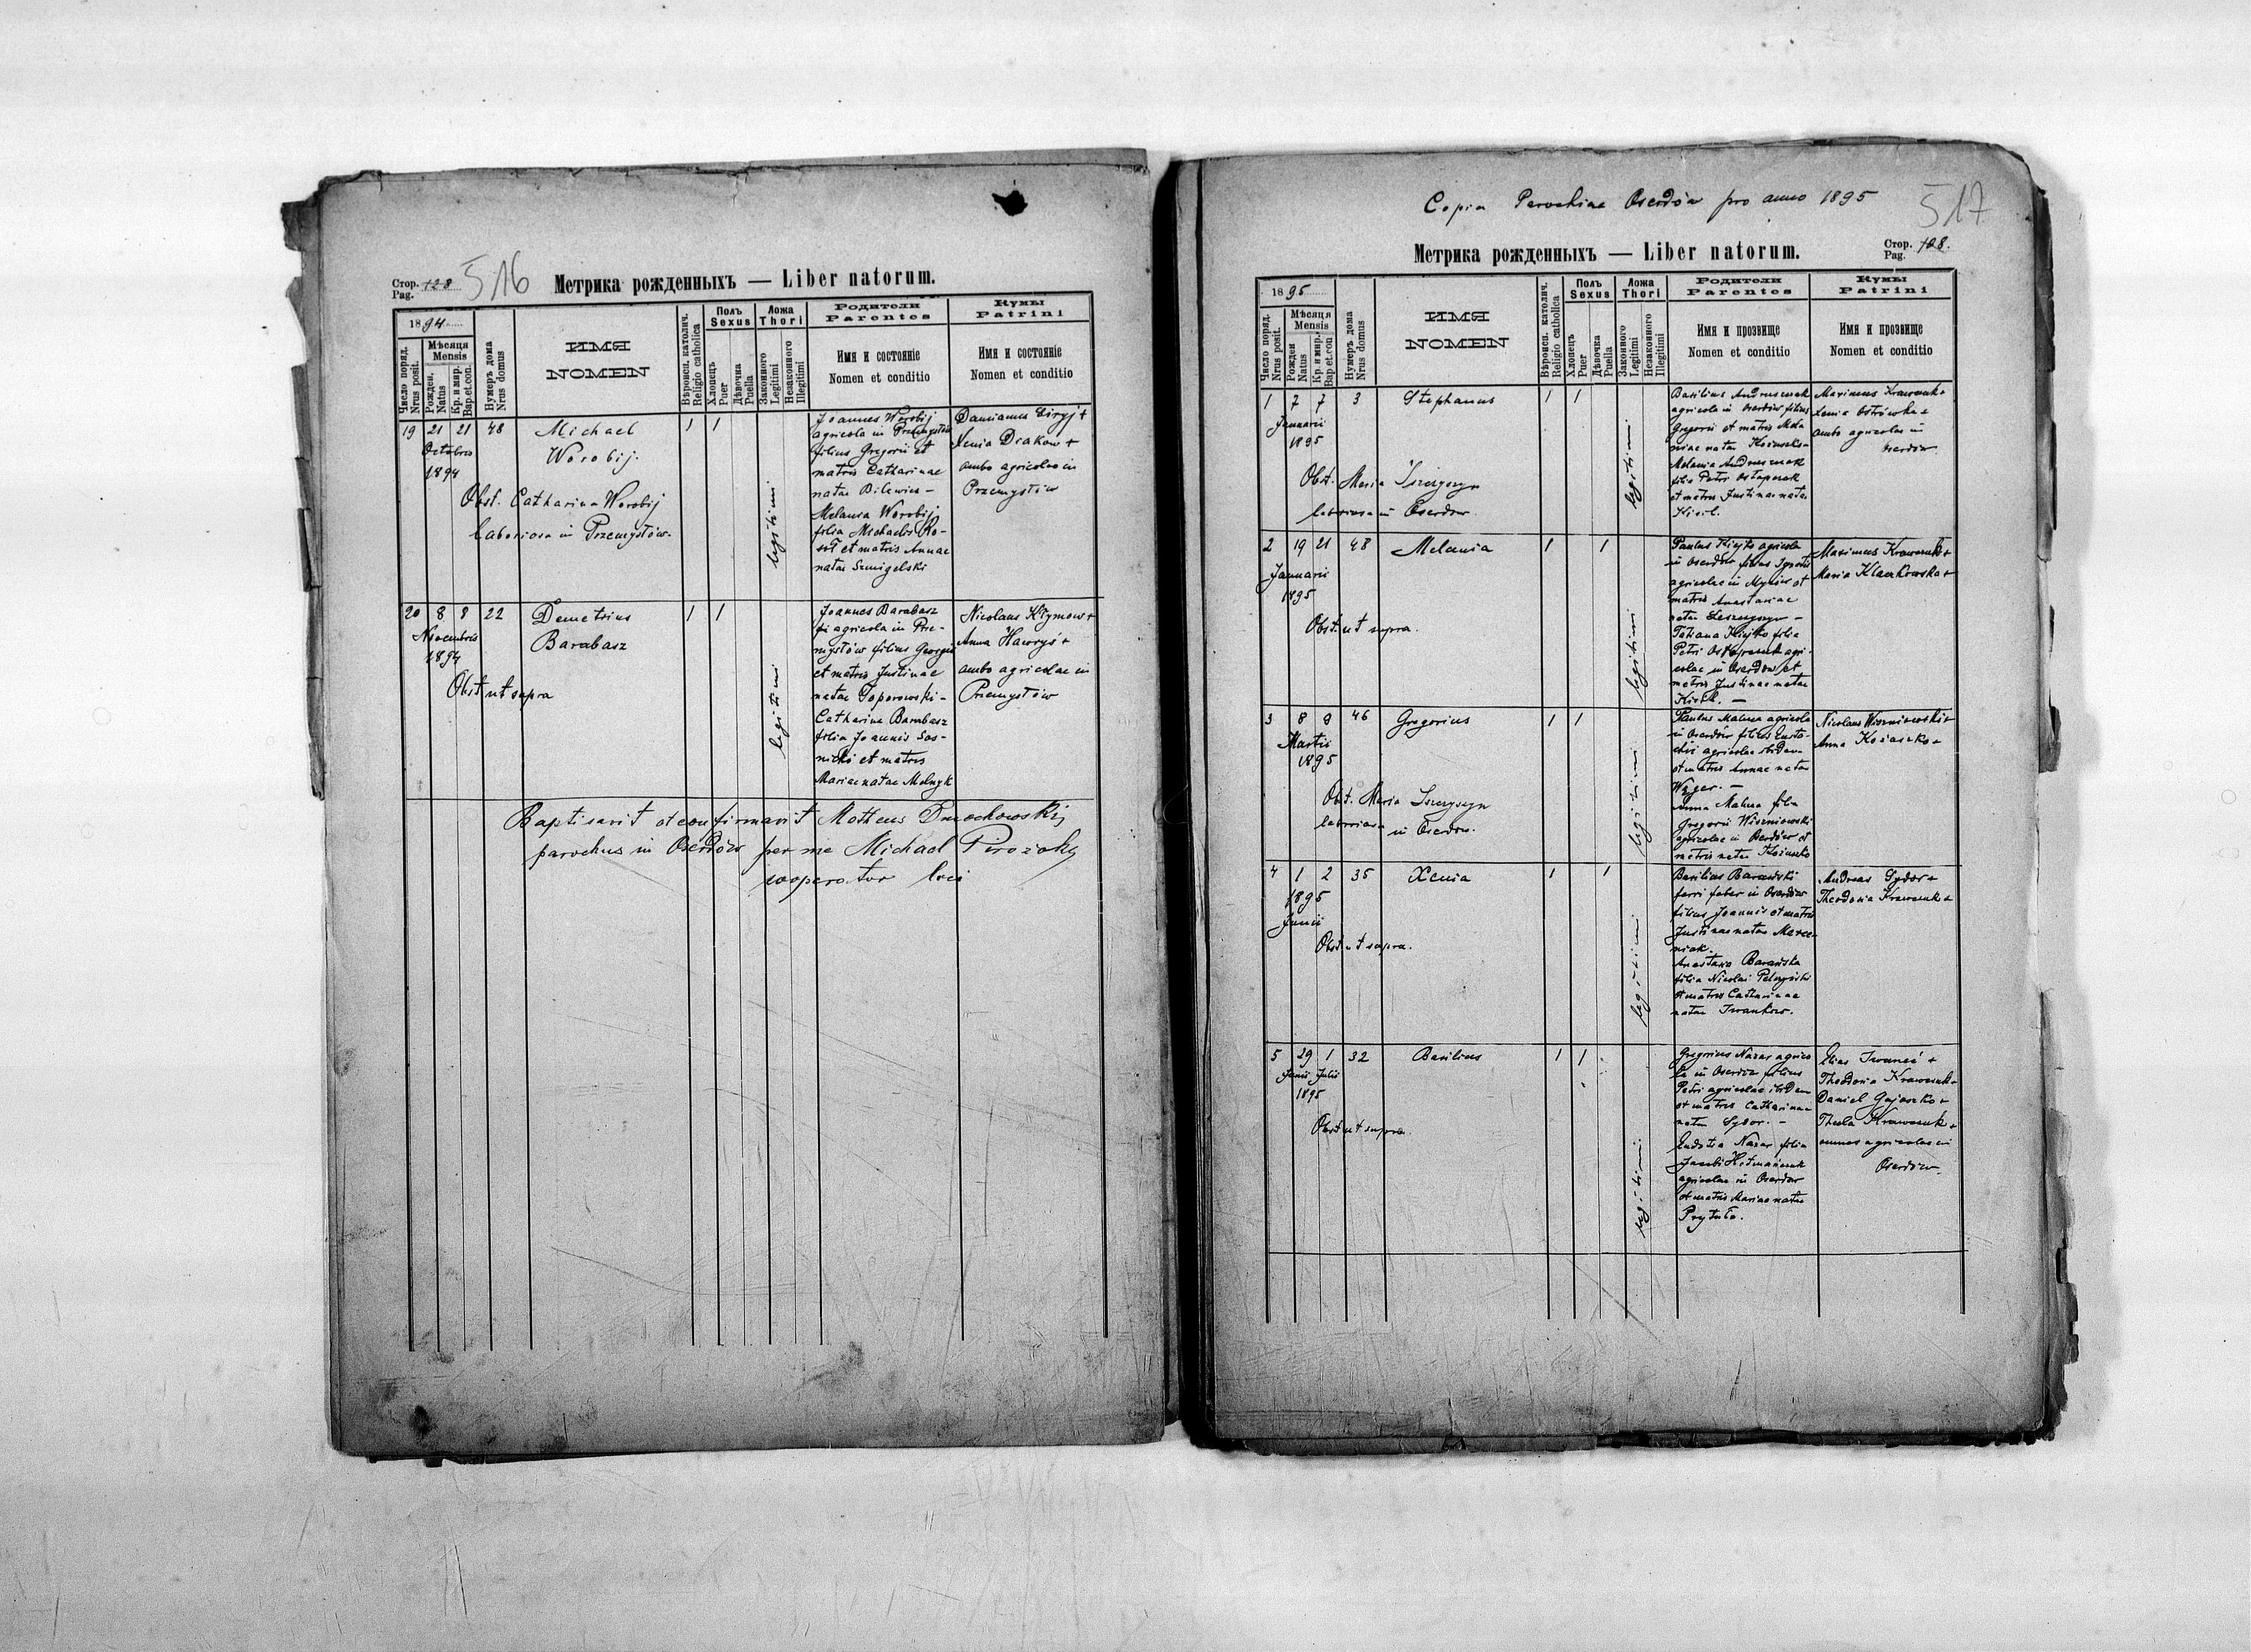 Стор. Pag. 128 516 Метрика рожденныхъ — Liber natorum.
1894
Число поряд. Nrus posit.
Мѣсяця Mensis
Рожден. Natus
Кр. и мир. Bap.et.con.
Нумеръ дома Nrus domus
ИМЯ NOMEN
Вѣроисп. католич. Religio catholica
Полъ Sexus
Хлопецъ Puer
Дѣвочка Puella
Ложа Thori
Законного Legitimi
Незаконного Illegitimi
Родители Parentes
Имя и состоянiе Nomen et conditio
Кумы Patrini
Имя и состоянiе Nomen et conditio
19 21 21 48 Michael 1 1
Octobris Worobij.
1894
Obst. Catharina Worobij
laboriosa in Przemysłów.
legitimi
Joannes Worobij
agricola in Przemysłów
filius Gregorii et
matris Catharinae
natae Bilewicz –
Melania Worobij
filia Michaelis Ko-
sot et matris Annae
natae Szmigelski
Damianus +
Xenia Diakow +
ambo agricolae in
Przemysłów
20 8 8 22 Demetrius 1 1
Novembris Barabasz
1894
Obst ut supra
legitimi
Joannes Barabasz
agricola in Prze-
mysłów filius Georgii
et matris Justinae
natae Toporowski –
Catharina Barabasz
filia Joannis Sos-
nicki et matris
Mariae natae Melnyk
Nicolaus Klymow +
Anna Hawryś +
ambo agricolae in
Przemysłów
Baptisavit et confirmavit Matheus Dmochowskij
parochus in Oserdów per me Michael
cooperator loci
Copia Parochiae Oserdów pro anno 1895 517
Метрика рожденныхъ — Liber natorum. Стор. Pag. 128.
1895
Число поряд. Nrus posit.
Мѣсяця Mensis
Рожден Natus
Кр. и мир. Bap.et.con
Нумеръ дома Nrus domus
ИМЯ NOMEN
Вѣроисп. католич. Religio catholica
Полъ Sexus
Хлопецъ Puer
Дѣвочка Puella
Ложа Thori
Законного Legitimi
Незаконного Illegitimi
Родители Parentes
Имя и прозвище Nomen et conditio
Кумы Patrini
Имя и прозвище Nomen et conditio
1 7 7 3 Stephanus 1 1
Januarii
1895
Obst. Maria Iszczyszyn
laboriosa in Oserdow.
legitimi
Basilius Andruszczak
agricola in Oserdów filius
Gregorii et matris Mela
niae natae Kożuszko –
Melania Andruszczak
filia Petri Ostapczuk
et matris Justinae natae
Kisil.
Maximus Krawczuk +
Xenia Ostrówka +
ambo agricolae in
Oserdów
2 19 21 48 Melania 1 1
Januarii
1895
Obst. ut supra.
legitimi
Paulus Kijko agricola
in Oserdów filius Ignatii
agricolae in Myców et
matris Anastasiae
natae Leszczyszyn –
Tatiana Kijko filia
Petri Ostapczuk agri-
colae in Oserdów et
matris Justinae natae
Kisil. –
Maximus Krawczuk +
Maria Klaczkowska +
3 8 9 46 Gregorius 1 1
Martii
1895
Obst. Maria Iszczyszyn
laboriosa in Oserdow.
legitimi
Paulus Maluca agricola
in Oserdów filius Eusta-
chii agricolae ibidem
et matris Annae natae
Anna Maluca filia
Gregorii Wiszniowski
agricolae in Oserdów et
matris natae Kożuszko
Nicolaus Wiszniowski +
Anna Kożuszko +
4 1 2 35 Xenia 1 1
1895
Junii
Obst ut supra.
legitimi
Basilius Barański
ferri faber in Oserdów
filius Joannis et matris
Justinae natae Marce-
niak.
Anastasia Barańska
filia Nicolai Pelczyński
et matris Catharinae
natae Iwanków.
Andreas Sydor +
Theodosia Krawczuk +
5 29 1 32 Basilius 1 1
Junii Julii
1895
Obst ut supra.
legitimi
Gregorius Nazar agrico
la in Oserdów filius
Petri agricolae ibidem
et matris Catharinae
natae Sydor. –
Eudokia Nazar filia
Jacobi Hetmańczuk
agricolae in Oserdów
et matris Mariae natae
Prytuła.
Elias Iwaneć +
Theodosia Krawczuk +
Daniel Gajoszko +
Thecla Krawczuk +
omnes agricolae in
Oserdów.